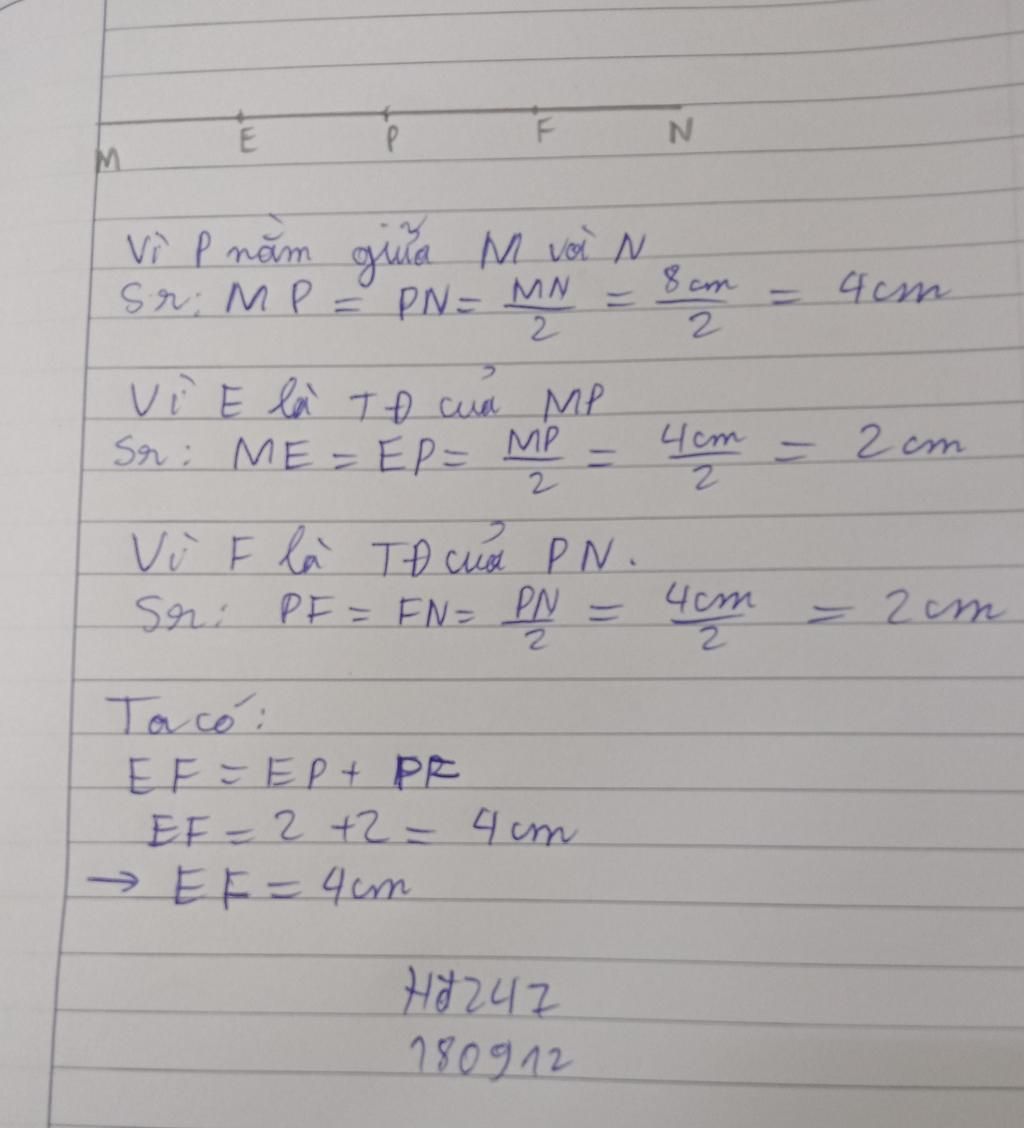 M E P F N
Vì P nằm giữa M với N
Sr: MP = PN = MN/2 = 8cm/2 = 4cm
Vì E là TĐ của MP
Sr: ME = EP = MP/2 = 4cm/2 = 2cm
Vì F là TĐ của PN.
Sr: PF = FN = PN/2 = 4cm/2 = 2cm
Ta có:
EF = EP + PF
EF = 2 + 2 = 4cm
→ EF = 4cm
Hđ247
180912